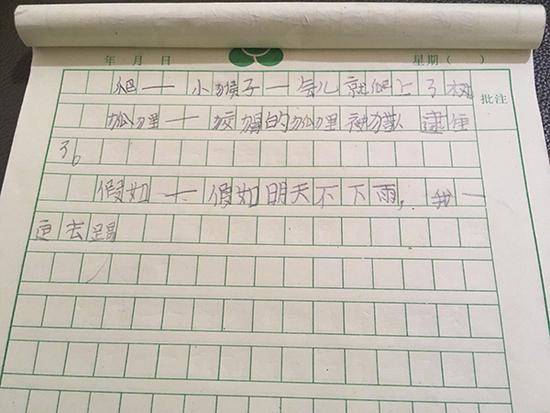 年 月 日 星期( )
爬——小猴子一气儿就爬上了树
批注
狐狸——狡猾的狐狸被猎人逮住
了。
假如——假如明天不下雨,我一
定去踢